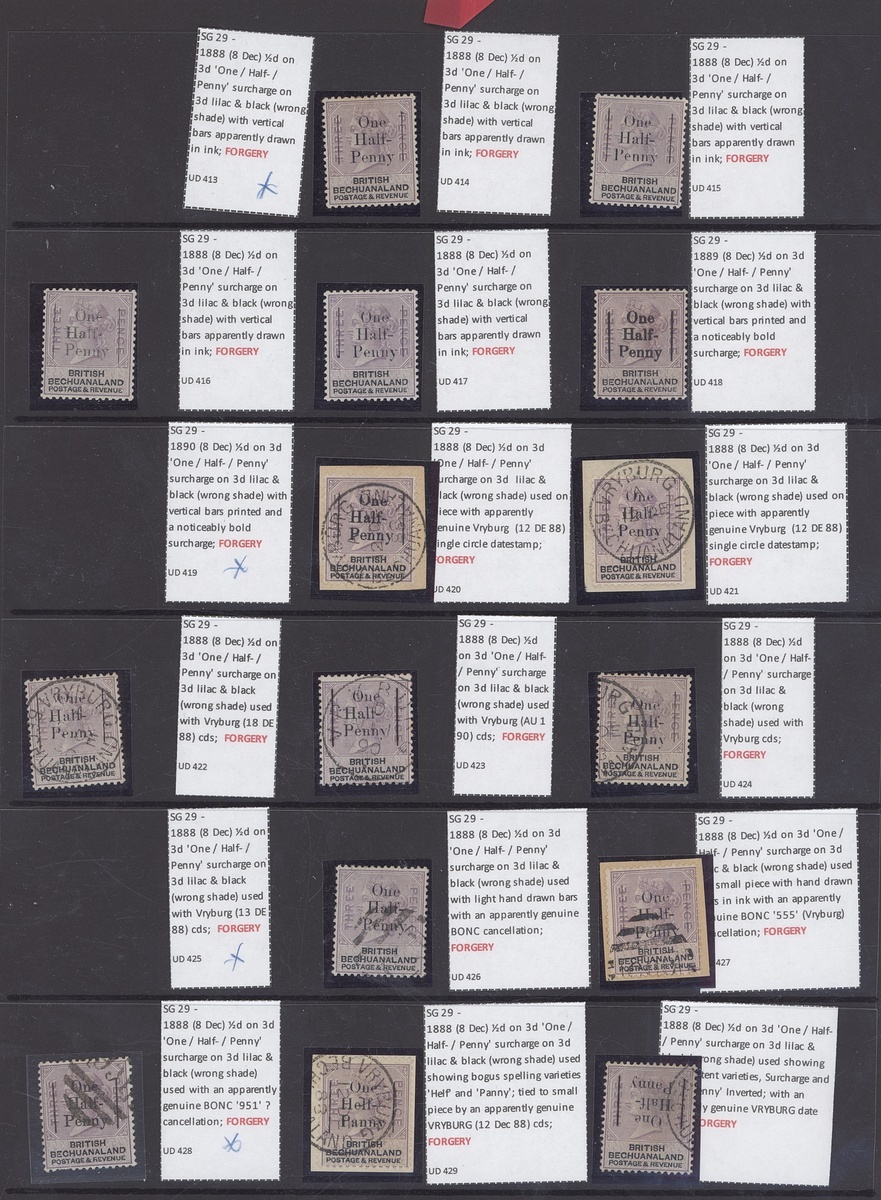 SG 29 -
1888 (8 Dec) ½d on
3d 'One / Half- /
Penny' surcharge on
3d lilac & black (wrong
shade) with vertical
bars apparently drawn
in ink; FORGERY
UD 413
One
Half-
Penny
BRITISH
BECHUANALAND
POSTAGE & REVENUE
SG 29 -
1888 (8 Dec) ½d on
3d 'One / Half- /
Penny' surcharge on
3d lilac & black (wrong
shade) with vertical
bars apparently drawn
in ink; FORGERY
UD 414
One
Half-
Penny
BRITISH
BECHUANALAND
POSTAGE & REVENUE
SG 29 -
1888 (8 Dec) ½d on
3d 'One / Half- /
Penny' surcharge on
3d lilac & black (wrong
shade) with vertical
bars apparently drawn
in ink; FORGERY
UD 415
THREE PENCE
One
Half-
Penny
BRITISH
BECHUANALAND
POSTAGE & REVENUE
SG 29 -
1888 (8 Dec) ½d on
3d 'One / Half- /
Penny' surcharge on
3d lilac & black (wrong
shade) with vertical
bars apparently drawn
in ink; FORGERY
UD 416
THREE PENCE
One
Half-
Penny
BRITISH
BECHUANALAND
POSTAGE & REVENUE
SG 29 -
1888 (8 Dec) ½d on
3d 'One / Half- /
Penny' surcharge on
3d lilac & black (wrong
shade) with vertical
bars apparently drawn
in ink; FORGERY
UD 417
One
Half-
Penny
BRITISH
BECHUANALAND
POSTAGE & REVENUE
SG 29 -
1889 (8 Dec) ½d on 3d
'One / Half- / Penny'
surcharge on 3d lilac &
black (wrong shade) with
vertical bars printed and
a noticeably bold
surcharge; FORGERY
UD 418
SG 29 -
1890 (8 Dec) ½d on 3d
'One / Half- / Penny'
surcharge on 3d lilac &
black (wrong shade) with
vertical bars printed and
a noticeably bold
surcharge; FORGERY
UD 419
One
Half-
Penny
BRITISH
BECHUANALAND
POSTAGE & REVENUE
SG 29 -
1888 (8 Dec) ½d on 3d
'One / Half- / Penny'
surcharge on 3d lilac &
black (wrong shade) used on
piece with apparently
genuine Vryburg (12 DE 88)
single circle datestamp;
FORGERY
UD 420
VRYBURG
One
Half-
Penny
BRITISH
BECHUANALAND
POSTAGE & REVENUE
SG 29 -
1888 (8 Dec) ½d on 3d
'One / Half- / Penny'
surcharge on 3d lilac &
black (wrong shade) used on
piece with apparently
genuine Vryburg (12 DE 88)
single circle datestamp;
FORGERY
UD 421
VRYBURG
One
Half-
Penny
BRITISH
BECHUANALAND
POSTAGE & REVENUE
SG 29 -
1888 (8 Dec) ½d on
3d 'One / Half- /
Penny' surcharge on
3d lilac & black
(wrong shade) used
with Vryburg (18 DE
88) cds; FORGERY
UD 422
One
Half-
Penny
BRITISH
BECHUANALAND
POSTAGE & REVENUE
SG 29 -
1888 (8 Dec) ½d
on 3d 'One / Half-
/ Penny' surcharge
on 3d lilac & black
(wrong shade) used
with Vryburg (AU 1
90) cds; FORGERY
UD 423
One
Half-
Penny
BRITISH
BECHUANALAND
POSTAGE & REVENUE
SG 29 -
1888 (8 Dec) ½d
on 3d 'One / Half-
/ Penny' surcharge
on 3d lilac &
black (wrong
shade) used with
Vryburg cds;
FORGERY
UD 424
SG 29 -
1888 (8 Dec) ½d on
3d 'One / Half- /
Penny' surcharge on
3d lilac & black
(wrong shade) used
with Vryburg (13 DE
88) cds; FORGERY
UD 425
THREE PENCE
One
Half-
Penny
BRITISH
BECHUANALAND
POSTAGE & REVENUE
SG 29 -
1888 (8 Dec) ½d on 3d
'One / Half- / Penny'
surcharge on 3d lilac &
black (wrong shade) used
with light hand drawn bars
with an apparently genuine
BONC cancellation;
FORGERY
UD 426
One
Half-
Penny
BRITISH
BECHUANALAND
POSTAGE & REVENUE
SG 29 -
1888 (8 Dec) ½d on 3d 'One /
Half- / Penny' surcharge on 3d
lilac & black (wrong shade) used
small piece with hand drawn
in ink with an apparently
BONC '555' (Vryburg)
FORGERY
427
One
Half-
Penny
BRITISH
BECHUANALAND
POSTAGE & REVENUE
SG 29 -
1888 (8 Dec) ½d on 3d
'One / Half- / Penny'
surcharge on 3d lilac &
black (wrong shade)
used with an apparently
genuine BONC '951' ?
cancellation; FORGERY
UD 428
VRYBURG
One
Helf-
Panny
BRITISH
BECHUANALAND
POSTAGE & REVENUE
SG 29 -
1888 (8 Dec) ½d on 3d 'One /
Half- / Penny' surcharge on 3d
lilac & black (wrong shade) used
showing bogus spelling varieties
'Helf' and 'Panny'; tied to small
piece by an apparently genuine
VRYBURG (12 Dec 88) cds;
FORGERY
UD 429
One
Half-
Panny
BRITISH
BECHUANALAND
POSTAGE & REVENUE
SG 29 -
1888 (8 Dec) ½d on 3d 'One / Half-
/ Penny' surcharge on 3d lilac &
(wrong shade) used showing
varieties, Surcharge and
Inverted; with an
genuine VRYBURG date
FORGERY